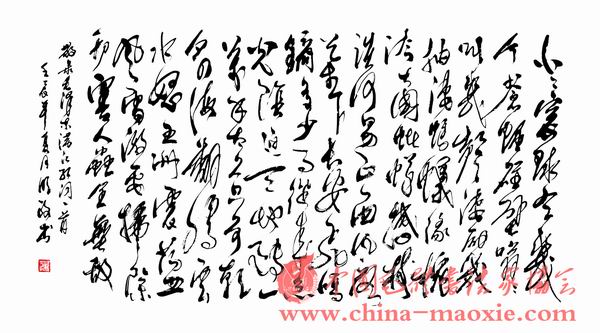 小小寰球有几
个苍蝇碰壁嗡嗡
叫几声凄厉几声
抽泣蚂蚁缘槐
夸大国蚍蜉撼树
谈何易正西风落
叶下长安飞鸣
镝多少事从来急
光阴迫天地转一
万年太久只争朝
夕四海翻腾云
水怒五洲震荡
风雷激要扫除
一切害人虫全无敌
敬录毛泽东满江红词一首
壬辰年夏月
中国毛体书法家协会
www.china-maoxie.com